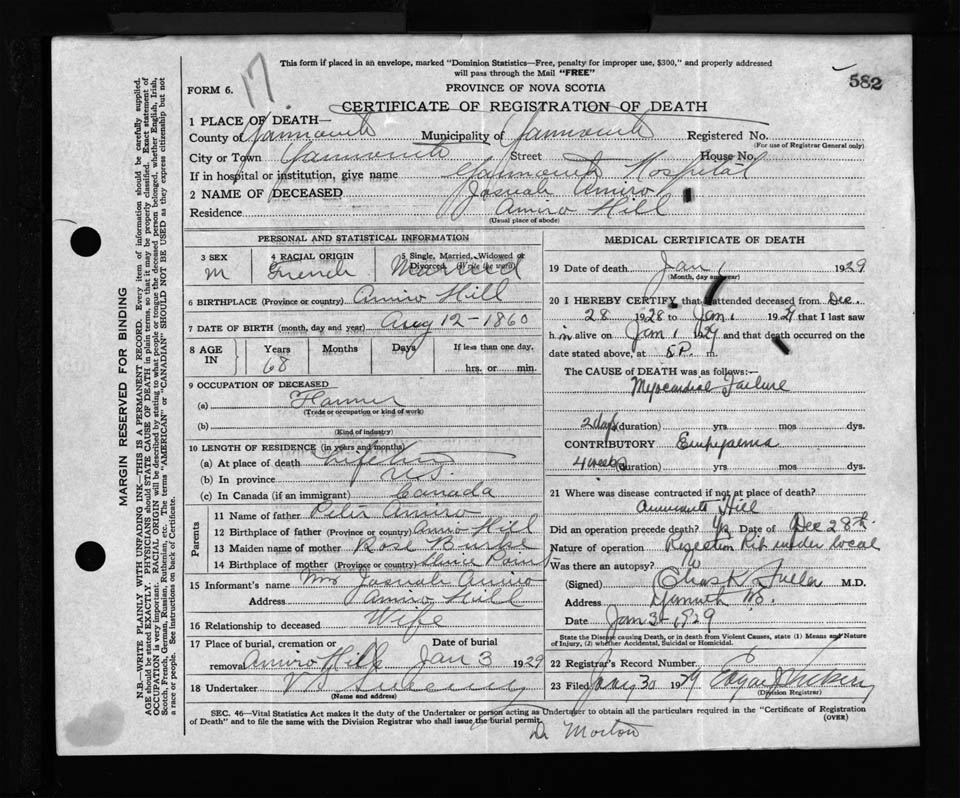 17.
This form if placed in an envelope, marked "Dominion Statistics—Free, penalty for improper use, $300," and properly addressed
will pass through the Mail "FREE"
582
FORM 6.
PROVINCE OF NOVA SCOTIA
CERTIFICATE OF REGISTRATION OF DEATH
1 PLACE OF DEATH—
County of Yarmouth Municipality of Yarmouth Registered No.
(For use of Registrar General only)
City or Town Yarmouth Street House No.
If in hospital or institution, give name Yarmouth Hospital
2 NAME OF DECEASED Josuah Amiro
Residence Amiro Hill
(Usual place of abode)
PERSONAL AND STATISTICAL INFORMATION
3 SEX 4 RACIAL ORIGIN 5 Single, Married, Widowed or
Divorced. (Write the word)
M French Married
6 BIRTHPLACE (Province or country) Amiro Hill
7 DATE OF BIRTH (month, day and year) Aug 12-1860
8 AGE IN Years Months Days If less than one day,
68 hrs. or min.
9 OCCUPATION OF DECEASED
(a) Farmer
(Trade or occupation or kind of work)
(b)
(Kind of industry)
10 LENGTH OF RESIDENCE (in years and months)
(a) At place of death Life time
(b) In province N.S.
(c) In Canada (if an immigrant) Canada
Parents
11 Name of father Peter Amiro
12 Birthplace of father (Province or country) Amiro Hill
13 Maiden name of mother Rose Burke
14 Birthplace of mother (Province or country)
15 Informant's name Mrs Josuah Amiro
Address Amiro Hill
16 Relationship to deceased Wife
17 Place of burial, cremation or Date of burial
removal Amiro Hill Jan 3 1929
18 Undertaker V S Sweeney
(Name and address)
MEDICAL CERTIFICATE OF DEATH
19 Date of death Jan 1 1929
(Month, day and year)
20 I HEREBY CERTIFY that I attended deceased from Dec.
28 1928 to Jan. 1 1929 that I last saw
him alive on Jan. 1 1929 and that death occurred on the
date stated above, at P. m.
The CAUSE of DEATH was as follows:—
Myocardial Failure
2 days (duration) yrs mos dys.
CONTRIBUTORY Emphyema
4 weeks (duration) yrs mos dys.
21 Where was disease contracted if not at place of death?
Hill
Did an operation precede death? Yes Date of Dec 28th
Nature of operation Resection Rib under local
Was there an autopsy? No
(Signed) Chas K Fuller M.D.
Address Yarmouth N.S.
Date Jan 3-1929
State the Disease causing Death, or in death from Violent Causes, state (1) Means and Nature
of Injury, (2) whether Accidental, Suicidal or Homicidal.
22 Registrar's Record Number
23 Filed Jany 30 1929 Edgar
(Division Registrar)
SEC. 46—Vital Statistics Act makes it the duty of the Undertaker or person acting as Undertaker to obtain all the particulars required in the "Certificate of Registration
of Death" and to file the same with the Division Registrar who shall issue the burial permit.
(OVER)
Dr Morton
MARGIN RESERVED FOR BINDING
N.B.—WRITE PLAINLY WITH UNFADING INK—THIS IS A PERMANENT RECORD. Every item of information should be carefully supplied.
AGE should be stated EXACTLY. PHYSICIANS should STATE CAUSE OF DEATH in plain terms, so that it may be properly classified. Exact statement of
OCCUPATION is very important. RACIAL ORIGIN will be described by stating to what people or tongue the deceased person belonged, whether English, Irish,
Scotch, French, German, Russian, Ruthenian, etc. The terms "AMERICAN" or "CANADIAN" SHOULD NOT BE USED as they express citizenship but not
a race or people. See instructions on back of Certificate.